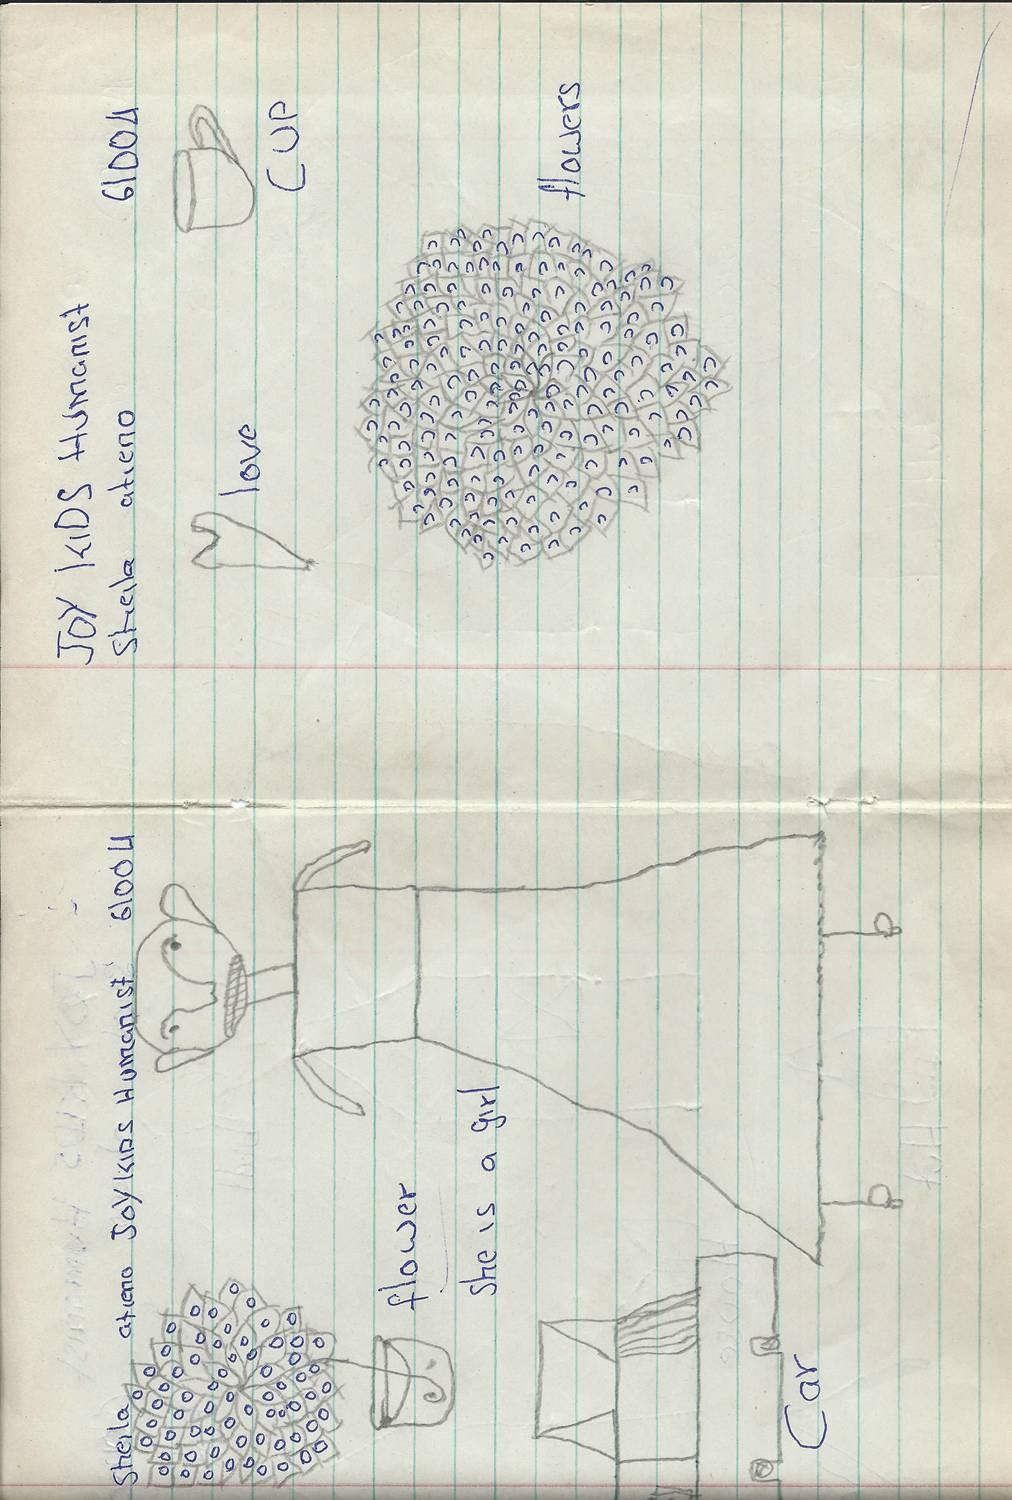 Sheila atieno JOY KIDS Humanist 61004
flower
she is a girl
Car
JOY KIDS Humanist
Sheila atieno 61004
love
CUP
flowers